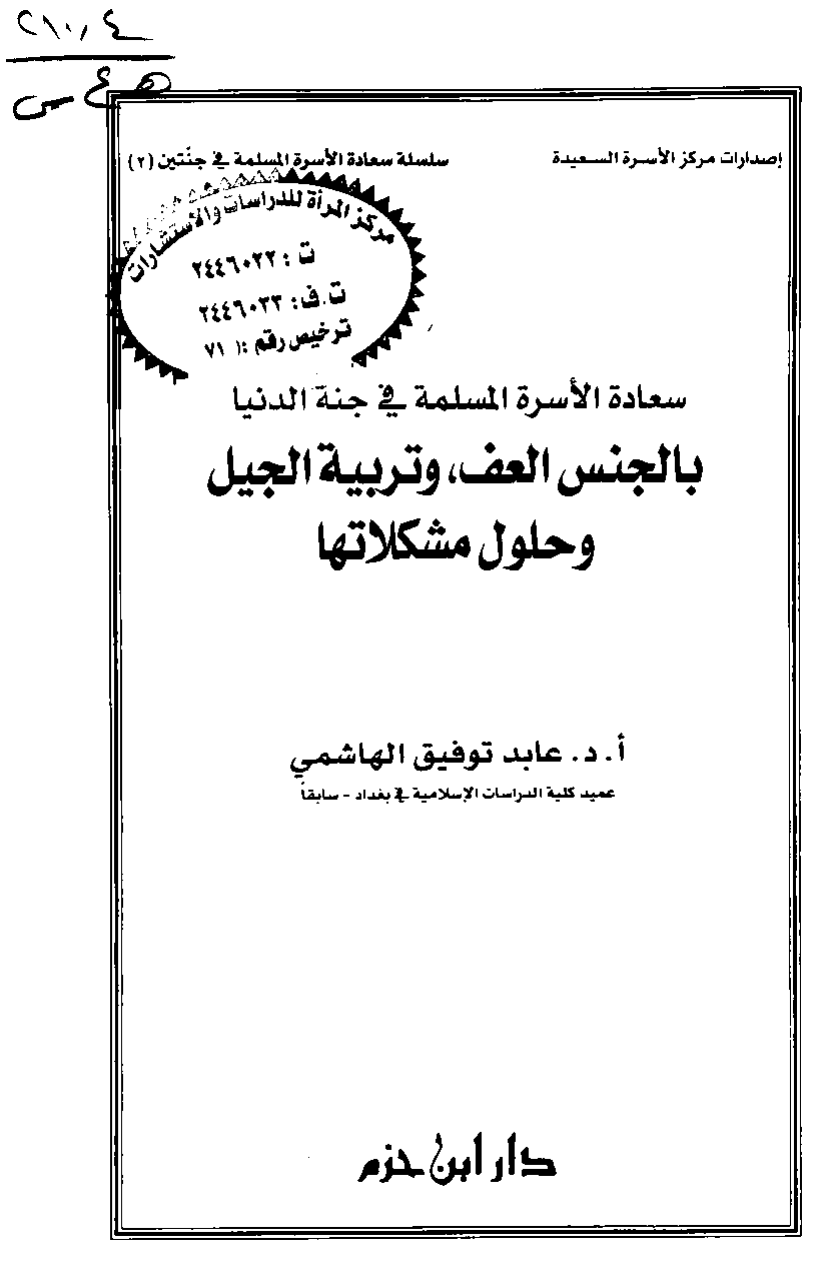 ٢١٠,٤
إصدارات مركز الأسرة السعيدة
سلسلة سعادة الأسرة المسلمة في جنّتين (٢)
مركز المرأة للدراسات والاستشارات
ت : ٢٤٤٦٠٢٢
ت.ف: ٢٤٤٦٠٣٣
ترخيص رقم :( ٧١
سعادة الأسرة المسلمة في جنة الدنيا
بالجنس العف، وتربية الجيل
وحلول مشكلاتها
أ. د. عابد توفيق الهاشمي
عميد كلية الدراسات الإسلامية في بغداد - سابقاً
دار ابن حزم